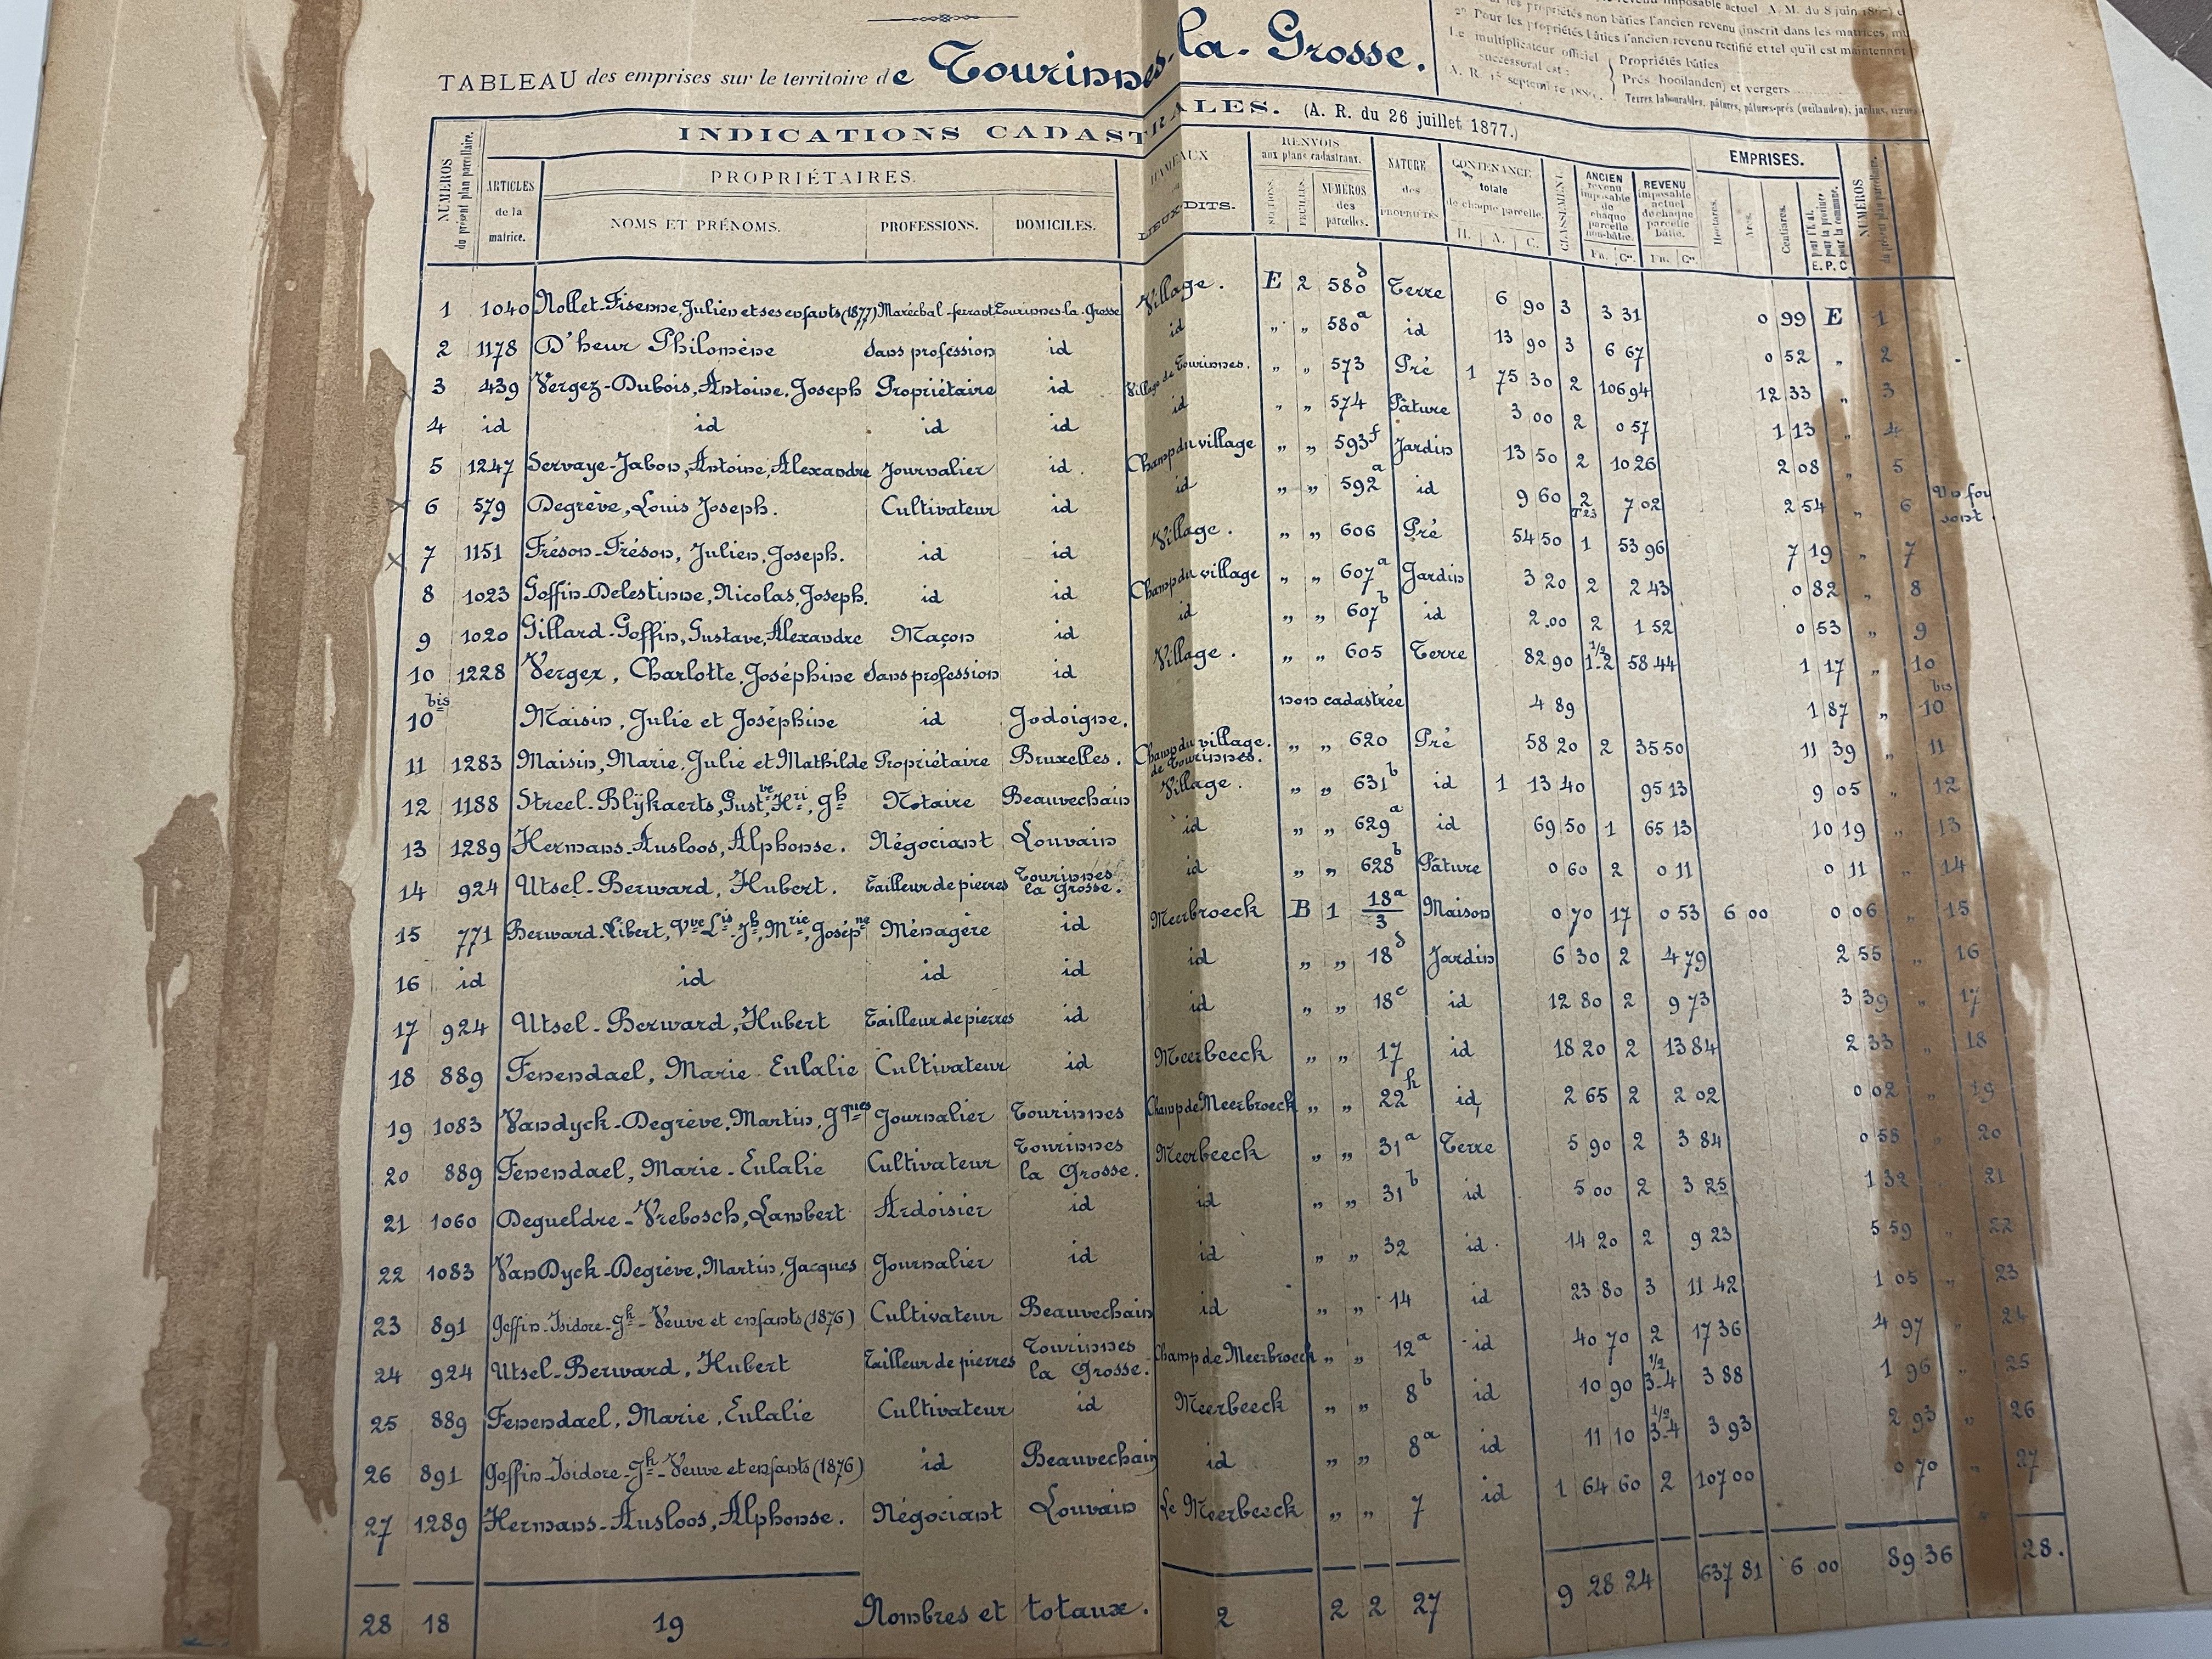 TABLEAU des emprises sur le territoire de Tourinnes-la-Grosse.
2° Pour les propriétés bâties l'ancien revenu rectifié et tel qu'il est maintenant
Le multiplicateur officiel successoral est :
(A. R. 1er septembre
Propriétés bâties
Prés (hooilanden) et vergers
Terres labourables, pâtures, pâtures-prés (weilanden), jardins, vignes
INDICATIONS CADASTRALES. (A. R. du 26 juillet 1877.)
NUMÉROS du présent plan parcellaire. ARTICLES de la matrice. PROPRIÉTAIRES. NOMS ET PRÉNOMS. PROFESSIONS. DOMICILES. HAMEAUX ou LIEUX DITS. RENVOIS aux plans cadastraux. SECTIONS. FEUILLES. NUMÉROS des parcelles. NATURE des PROPRIÉTÉS CONTENANCE totale de chaque parcelle. H. A. C. CLASSEMENT. ANCIEN revenu imposable de chaque parcelle non-bâtie. Fr. Cs. REVENU imposable actuel de chaque parcelle bâtie. Fr. Cs. EMPRISES. Hectares. Ares. Centiares. pour l'État, pour la province, pour la commune. E. P. C. NUMÉROS du présent plan parcellaire.
1 1040 Nollet-Fisenne, Julien et ses enfants (1877) Maréchal-ferrant Tourinnes-la-Grosse Village. E 2 580d Terre 6 90 3 3 31 0 99 E 1
2 1178 D'heur Philomène Sans profession id id „ „ 580a id 13 90 3 6 67 0 52 „ 2
3 439 Vergez-Dubois, Antoine, Joseph Propriétaire id Village de Tourinnes. „ „ 573 Pré 1 75 30 2 106 94 12 33 „ 3
4 id id id id id „ „ 574 Pâture 3 00 2 0 57 1 13 „ 4
5 1247 Servaye-Jabon, Antoine, Alexandre Journalier id. Champ du village „ „ 593f Jardin 13 50 2 10 26 2 08 „ 5
6 579 Degrève, Louis Joseph. Cultivateur id id „ „ 592a id 9 60 2 7 02 2 54 „ 6
7 1151 Fréson-Fréson, Julien, Joseph. id id Village. „ „ 606 Pré 54 50 1 53 96 7 19 „ 7
8 1023 Goffin-Delestinne, Nicolas, Joseph. id id Champ du village „ „ 607a Jardin 3 20 2 2 43 0 82 „ 8
9 1020 Gillard-Goffin, Gustave, Alexandre Maçon id id „ „ 607b id 2.00 2 1 52 0 53 „ 9
10 1228 Vergez, Charlotte, Joséphine Sans profession id Village. „ „ 605 Terre 82 90 1/2 1-2 58 44 1 17 „ 10
10bis Maisin, Julie et Joséphine id Jodoigne. non cadastrée 4 89 1 87 „ 10bis
11 1283 Maisin, Marie, Julie et Mathilde Propriétaire Bruxelles. Champ du village de Tourinnes. „ „ 620 Pré 58 20 2 35 50 11 39 „ 11
12 1188 Streel-Blÿkaerts, Gustve, Hri, Jh Notaire Beauvechain Village. „ „ 631b id 1 13 40 95 13 9 05 „ 12
13 1289 Hermans-Ausloos, Alphonse. Négociant Louvain id „ „ 629a id 69 50 1 65 13 10 19 „ 13
14 924 Utsel-Berward, Hubert. Tailleur de pierres Tourinnes la Grosse. id „ „ 628b Pâture 0 60 2 0 11 0 11 „ 14
15 771 Berward-Libert, Vve Lis-Jh, Mrie, Joséphne Ménagère id Meerbroeck B 1 18a/3 Maison 0 70 17 0 53 6 00 0 06 „ 15
16 id id id id id „ „ 18d Jardin 6 30 2 4 79 2 55 „ 16
17 924 Utsel-Berward, Hubert Tailleur de pierres id id „ „ 18c id 12 80 2 9 73 3 39 „ 17
18 889 Fenendael, Marie Eulalie Cultivateur id Meerbeeck „ „ 17 id 18 20 2 13 84 2 33 „ 18
19 1083 Vandyck-Degrève, Martin, Jques Journalier Tourinnes Champ de Meerbroeck „ „ 22h id 2 65 2 2 02 0 02 „ 19
20 889 Fenendael, Marie-Eulalie Cultivateur Tourinnes la Grosse. Meerbeeck „ „ 31a Terre 5 90 2 3 84 0 58 „ 20
21 1060 Degueldre-Vrebosch, Lambert Ardoisier id id „ „ 31b id 5 00 2 3 25 1 32 21
22 1083 VanDyck-Degrève, Martin, Jacques Journalier id id „ „ 32 id 14 20 2 9 23 5 59 „ 22
23 891 Goffin-Isidore-Jh-Veuve et enfants (1876) Cultivateur Beauvechain id „ „ 14 id 23 80 3 11 42 1 05 „ 23
24 924 Utsel-Berward, Hubert Tailleur de pierres Tourinnes la Grosse. Champ de Meerbroeck „ „ 12a id 40 70 2 17 36 4 97 „ 24
25 889 Fenendael, Marie, Eulalie Cultivateur id Meerbeeck „ „ 8b id 10 90 1/2 3-4 3 88 1 96 „ 25
26 891 Goffin-Isidore-Jh-Veuve et enfants (1876) id Beauvechain id „ „ 8a id 11 10 1/2 3-4 3 93 2 93 „ 26
27 1289 Hermans-Ausloos, Alphonse. Négociant Louvain Le Meerbeeck „ „ 7 id 1 64 60 2 107 00 0 70 „ 27
28 18 19 Nombres et totaux. 2 2 2 27 9 28 24 637 81 6 00 89 36 28.